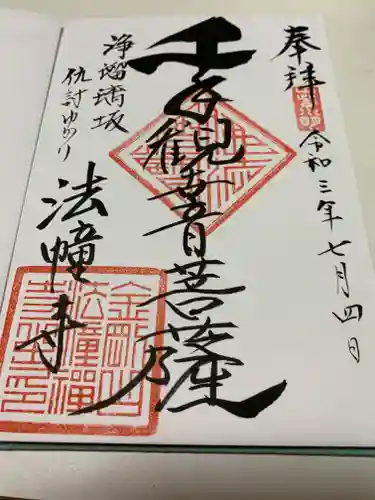 奉拝
令和三年七月四日
千手観世音菩薩
浄瑠璃坂
仇討ゆかり
法幢寺